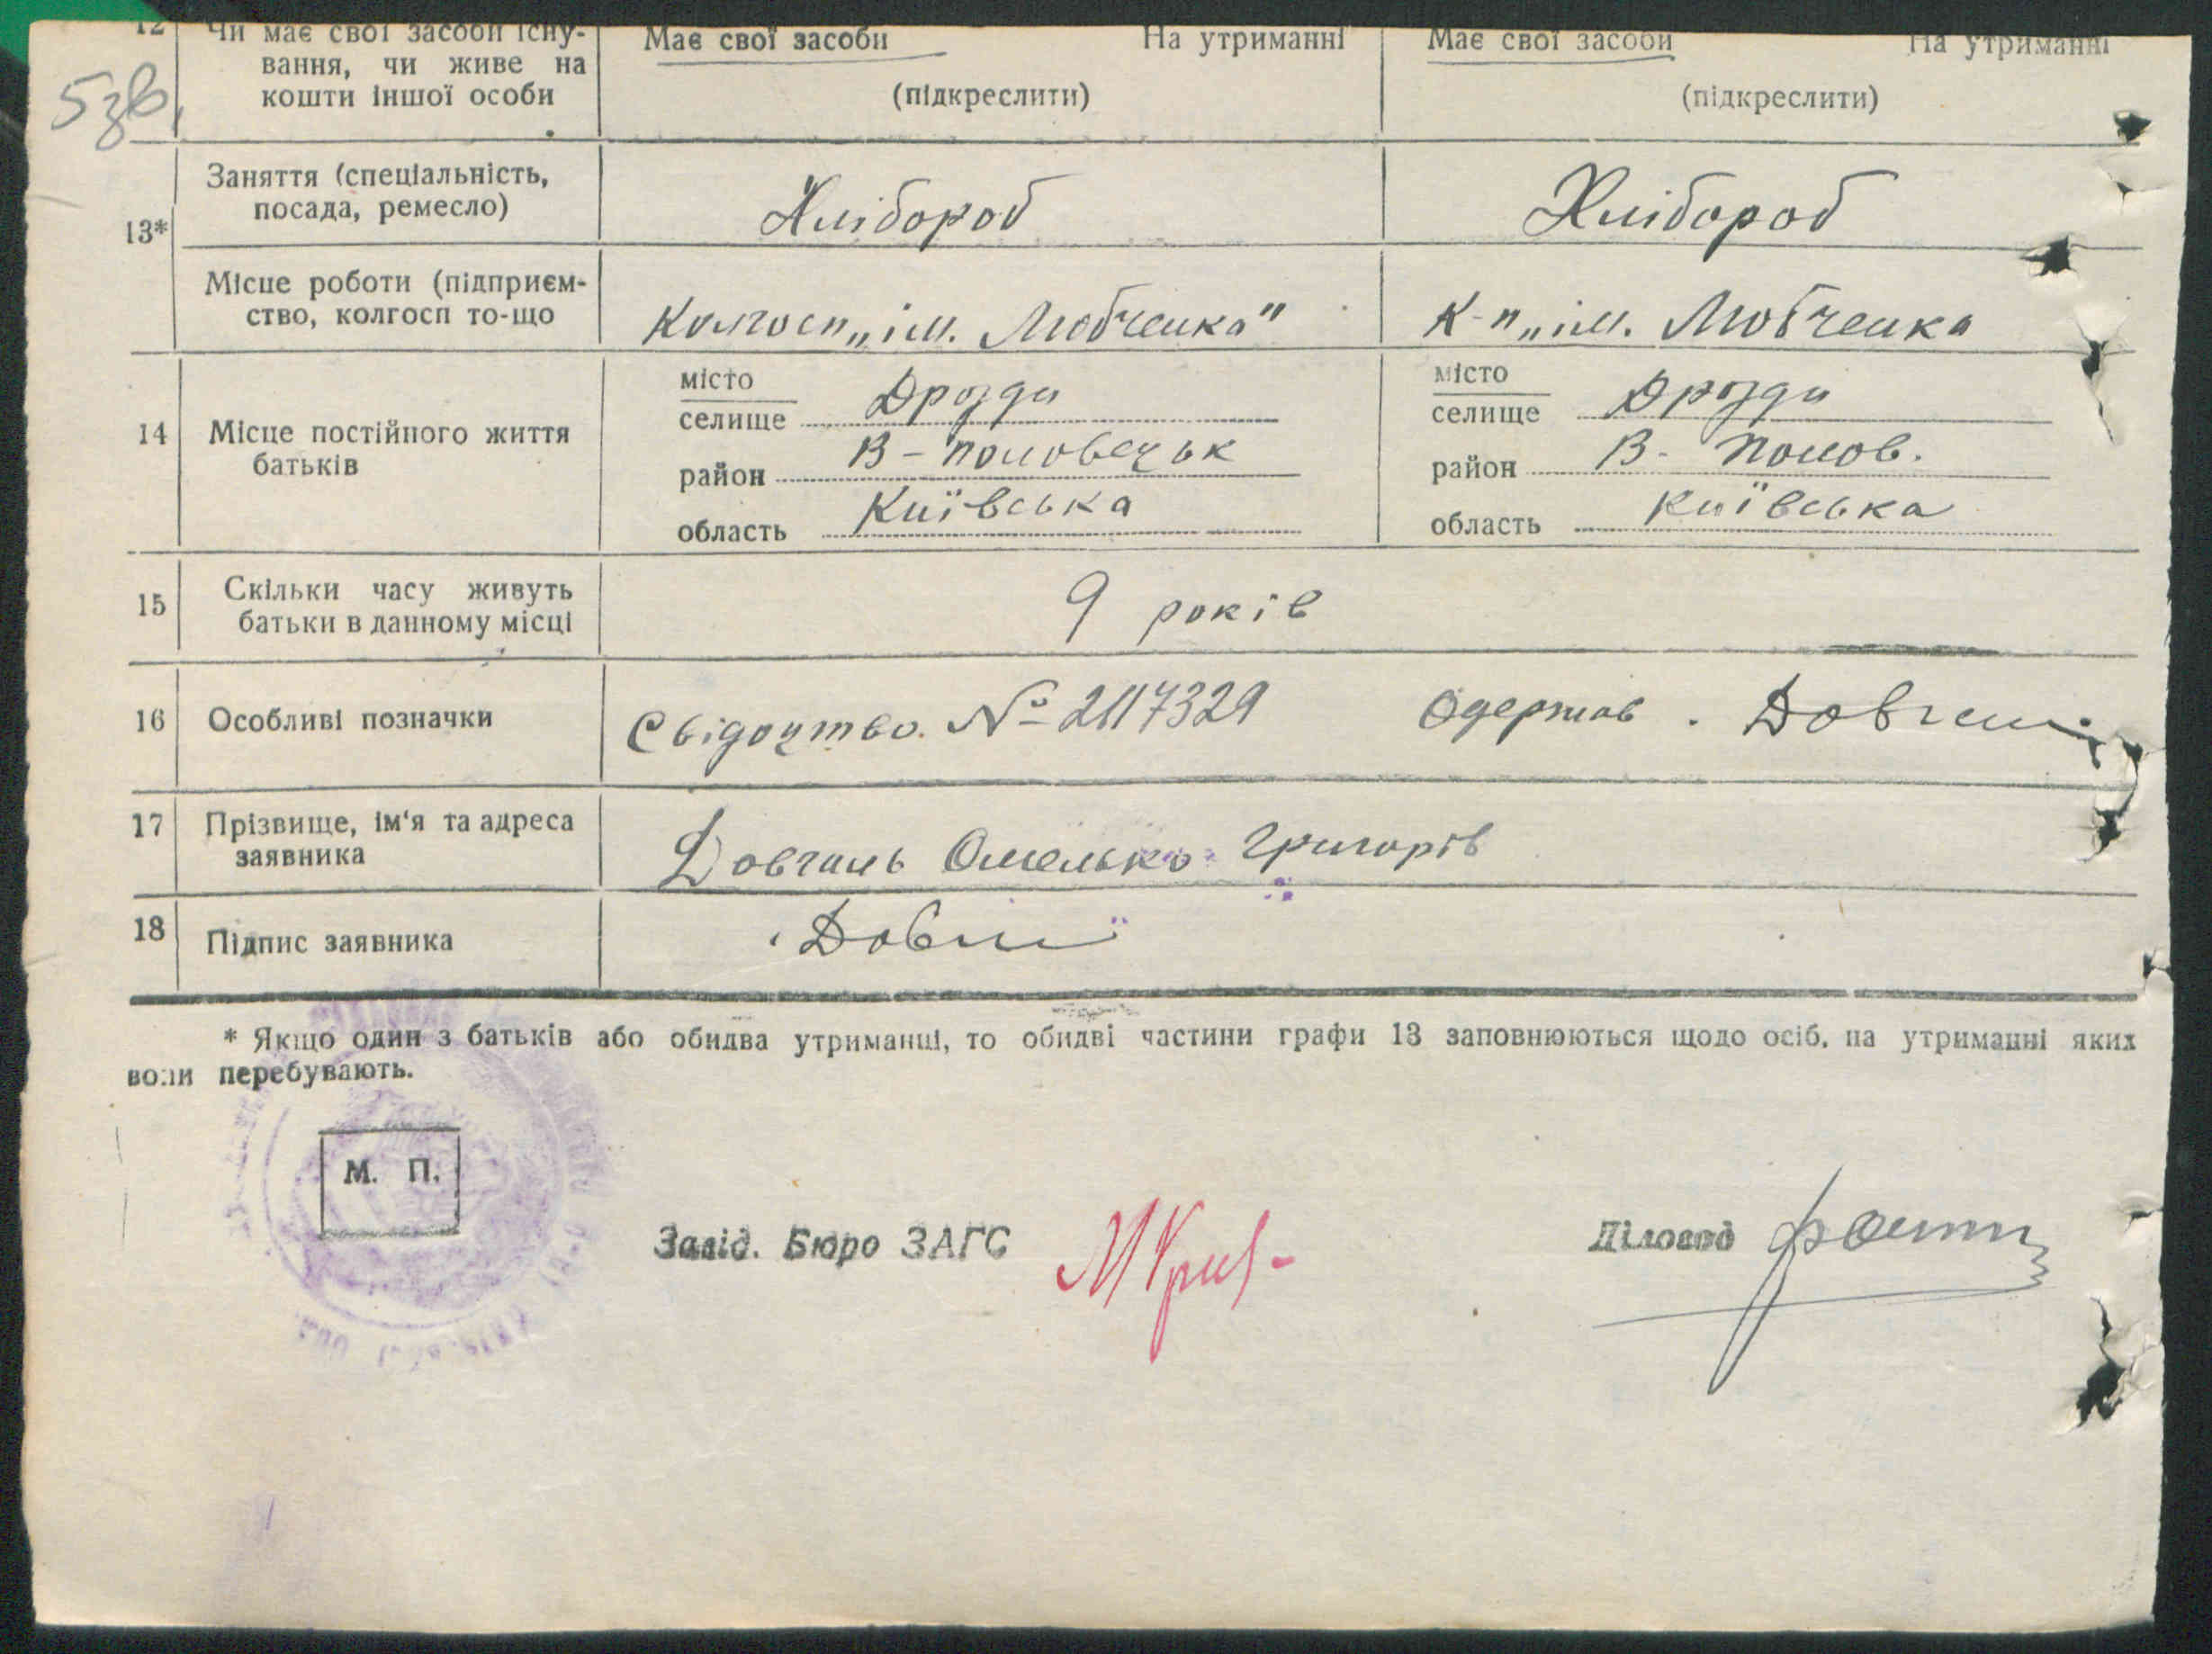 12 Чи має свої засоби існу- Має свої засоби На утриманні Має свої засоби На утриманні
вання, чи живе на
кошти іншої особи (підкреслити) (підкреслити)
5зв.
Заняття (спеціальність,
посада, ремесло) Хлібороб Хлібороб
13*
Місце роботи (підприєм-
ство, колгосп то-що Колгосп „ім. Любченка" К-п „ім. Любченка
місто місто
селище Дрозди селище Дрозди
14 Місце постійного життя
батьків
район В-Половецьк район В-Полов.
область Київська область Київська
15 Скільки часу живуть
батьки в данному місці 9 років
16 Особливі позначки Свідоцтво № 2117329 Одержав. Довгань
17 Прізвище, ім'я та адреса
заявника Довгань Омелько Григорів
18 Підпис заявника
* Якщо один з батьків або обидва утриманці, то обидві частини графи 13 заповнюються щодо осіб, на утриманні яких
вони перебувають.
М. П.
Завід. Бюро ЗАГС Діловод